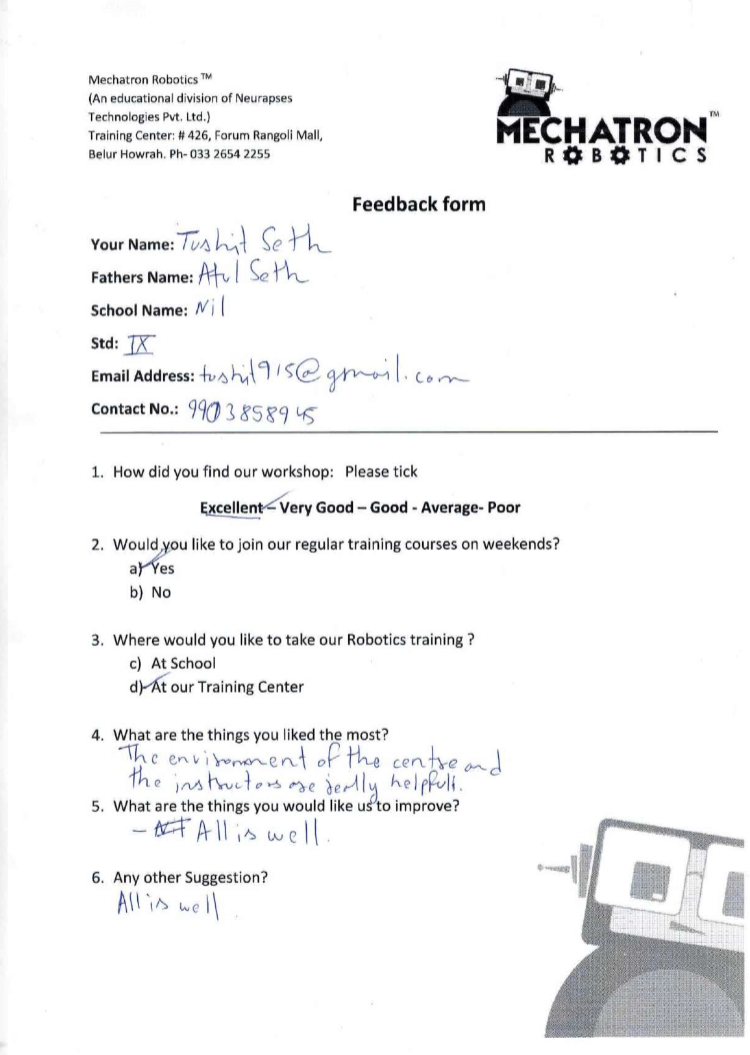 Mechatron Robotics ™
(An educational division of Neurapses
Technologies Pvt. Ltd.)
Training Center: # 426, Forum Rangoli Mall,
Belur Howrah. Ph- 033 2654 2255
MECHATRON™
ROBOTICS
Feedback form
Your Name: Tushit Seth
Fathers Name: Atul Seth
School Name: Nil
Std: IX
Email Address: tushit915@gmail.com
Contact No.: 9903858945
1. How did you find our workshop: Please tick
Excellent – Very Good – Good - Average- Poor
2. Would you like to join our regular training courses on weekends?
a) Yes
b) No
3. Where would you like to take our Robotics training ?
c) At School
d) At our Training Center
4. What are the things you liked the most?
The environment of the centre and
the instructors are really helpfull.
5. What are the things you would like us to improve?
- All is well.
6. Any other Suggestion?
All is well